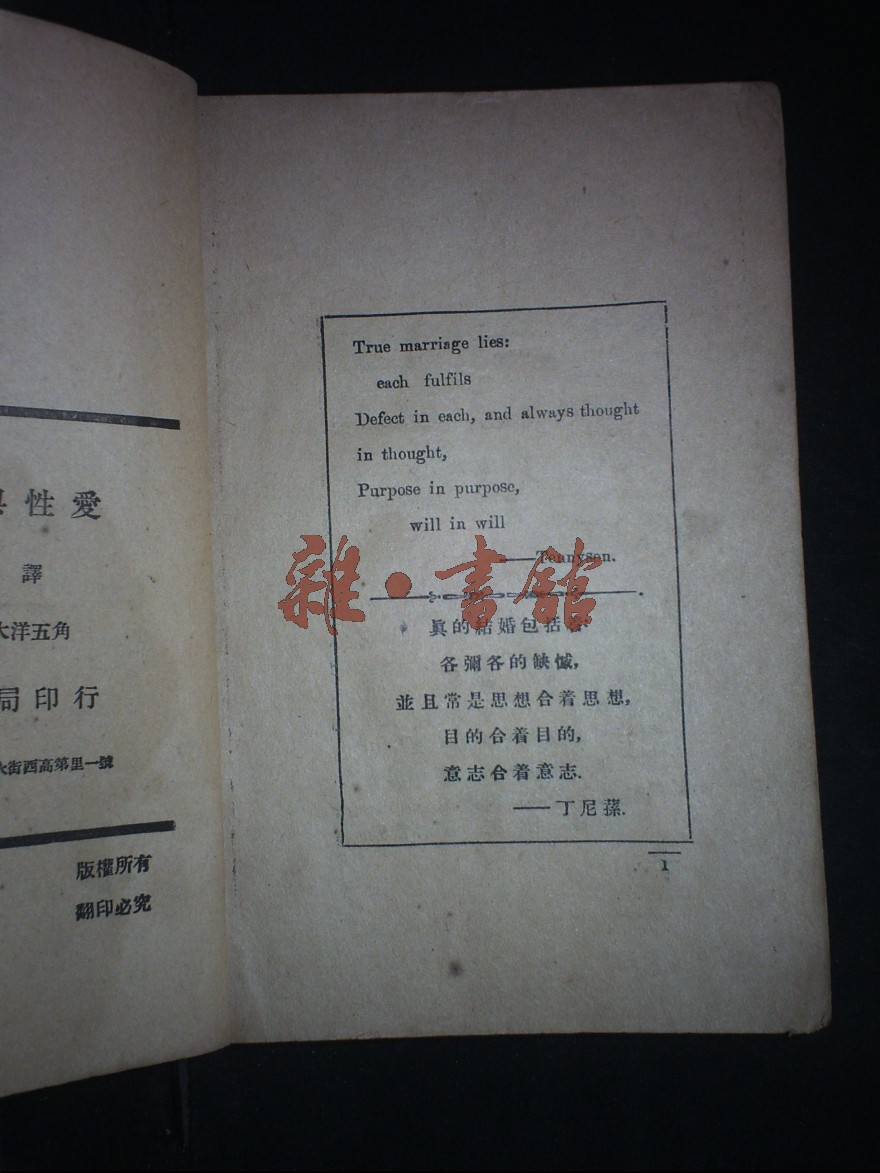 性愛
譯
大洋五角
局印行
大街西高第里一號
版權所有
翻印必究
True marriage lies:
each fulfils
Defect in each, and always thought
in thought,
Purpose in purpose,
will in will
——Tennyson.
真的結婚包括着:
各彌各的缺憾,
並且常是思想合着思想,
目的合着目的,
意志合着意志.
——丁尼蓀.
1
雜·書館